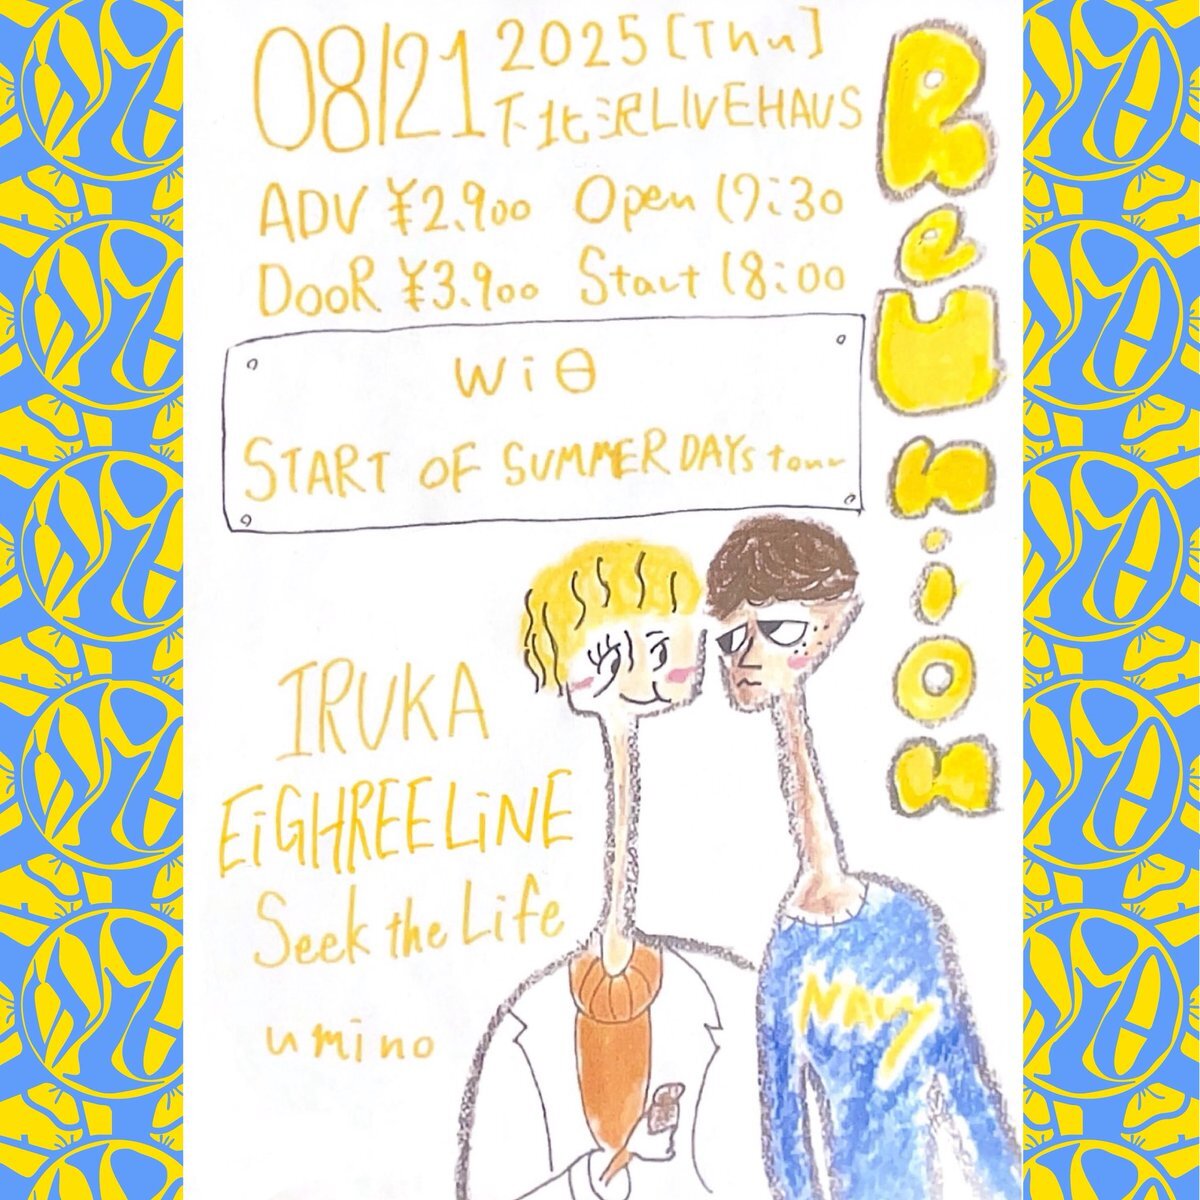 08/21 2025 [Thu]
下北沢LIVEHAUS
ADV ¥2.900 Open 17:30
DOOR ¥3.900 Start 18:00
Reunion
Wiθ
START OF SUMMER DAYS tour
IRUKA
EiGHREELiNE
Seek the Life
umino
NAVY